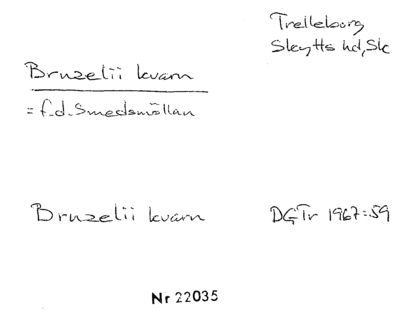 Trelleborg
Skytts hd, Sk
Bruzelii kvarn
= f.d. Smedsmöllan
Bruzelii kvarn DGTr 1967:59
Nr 22035